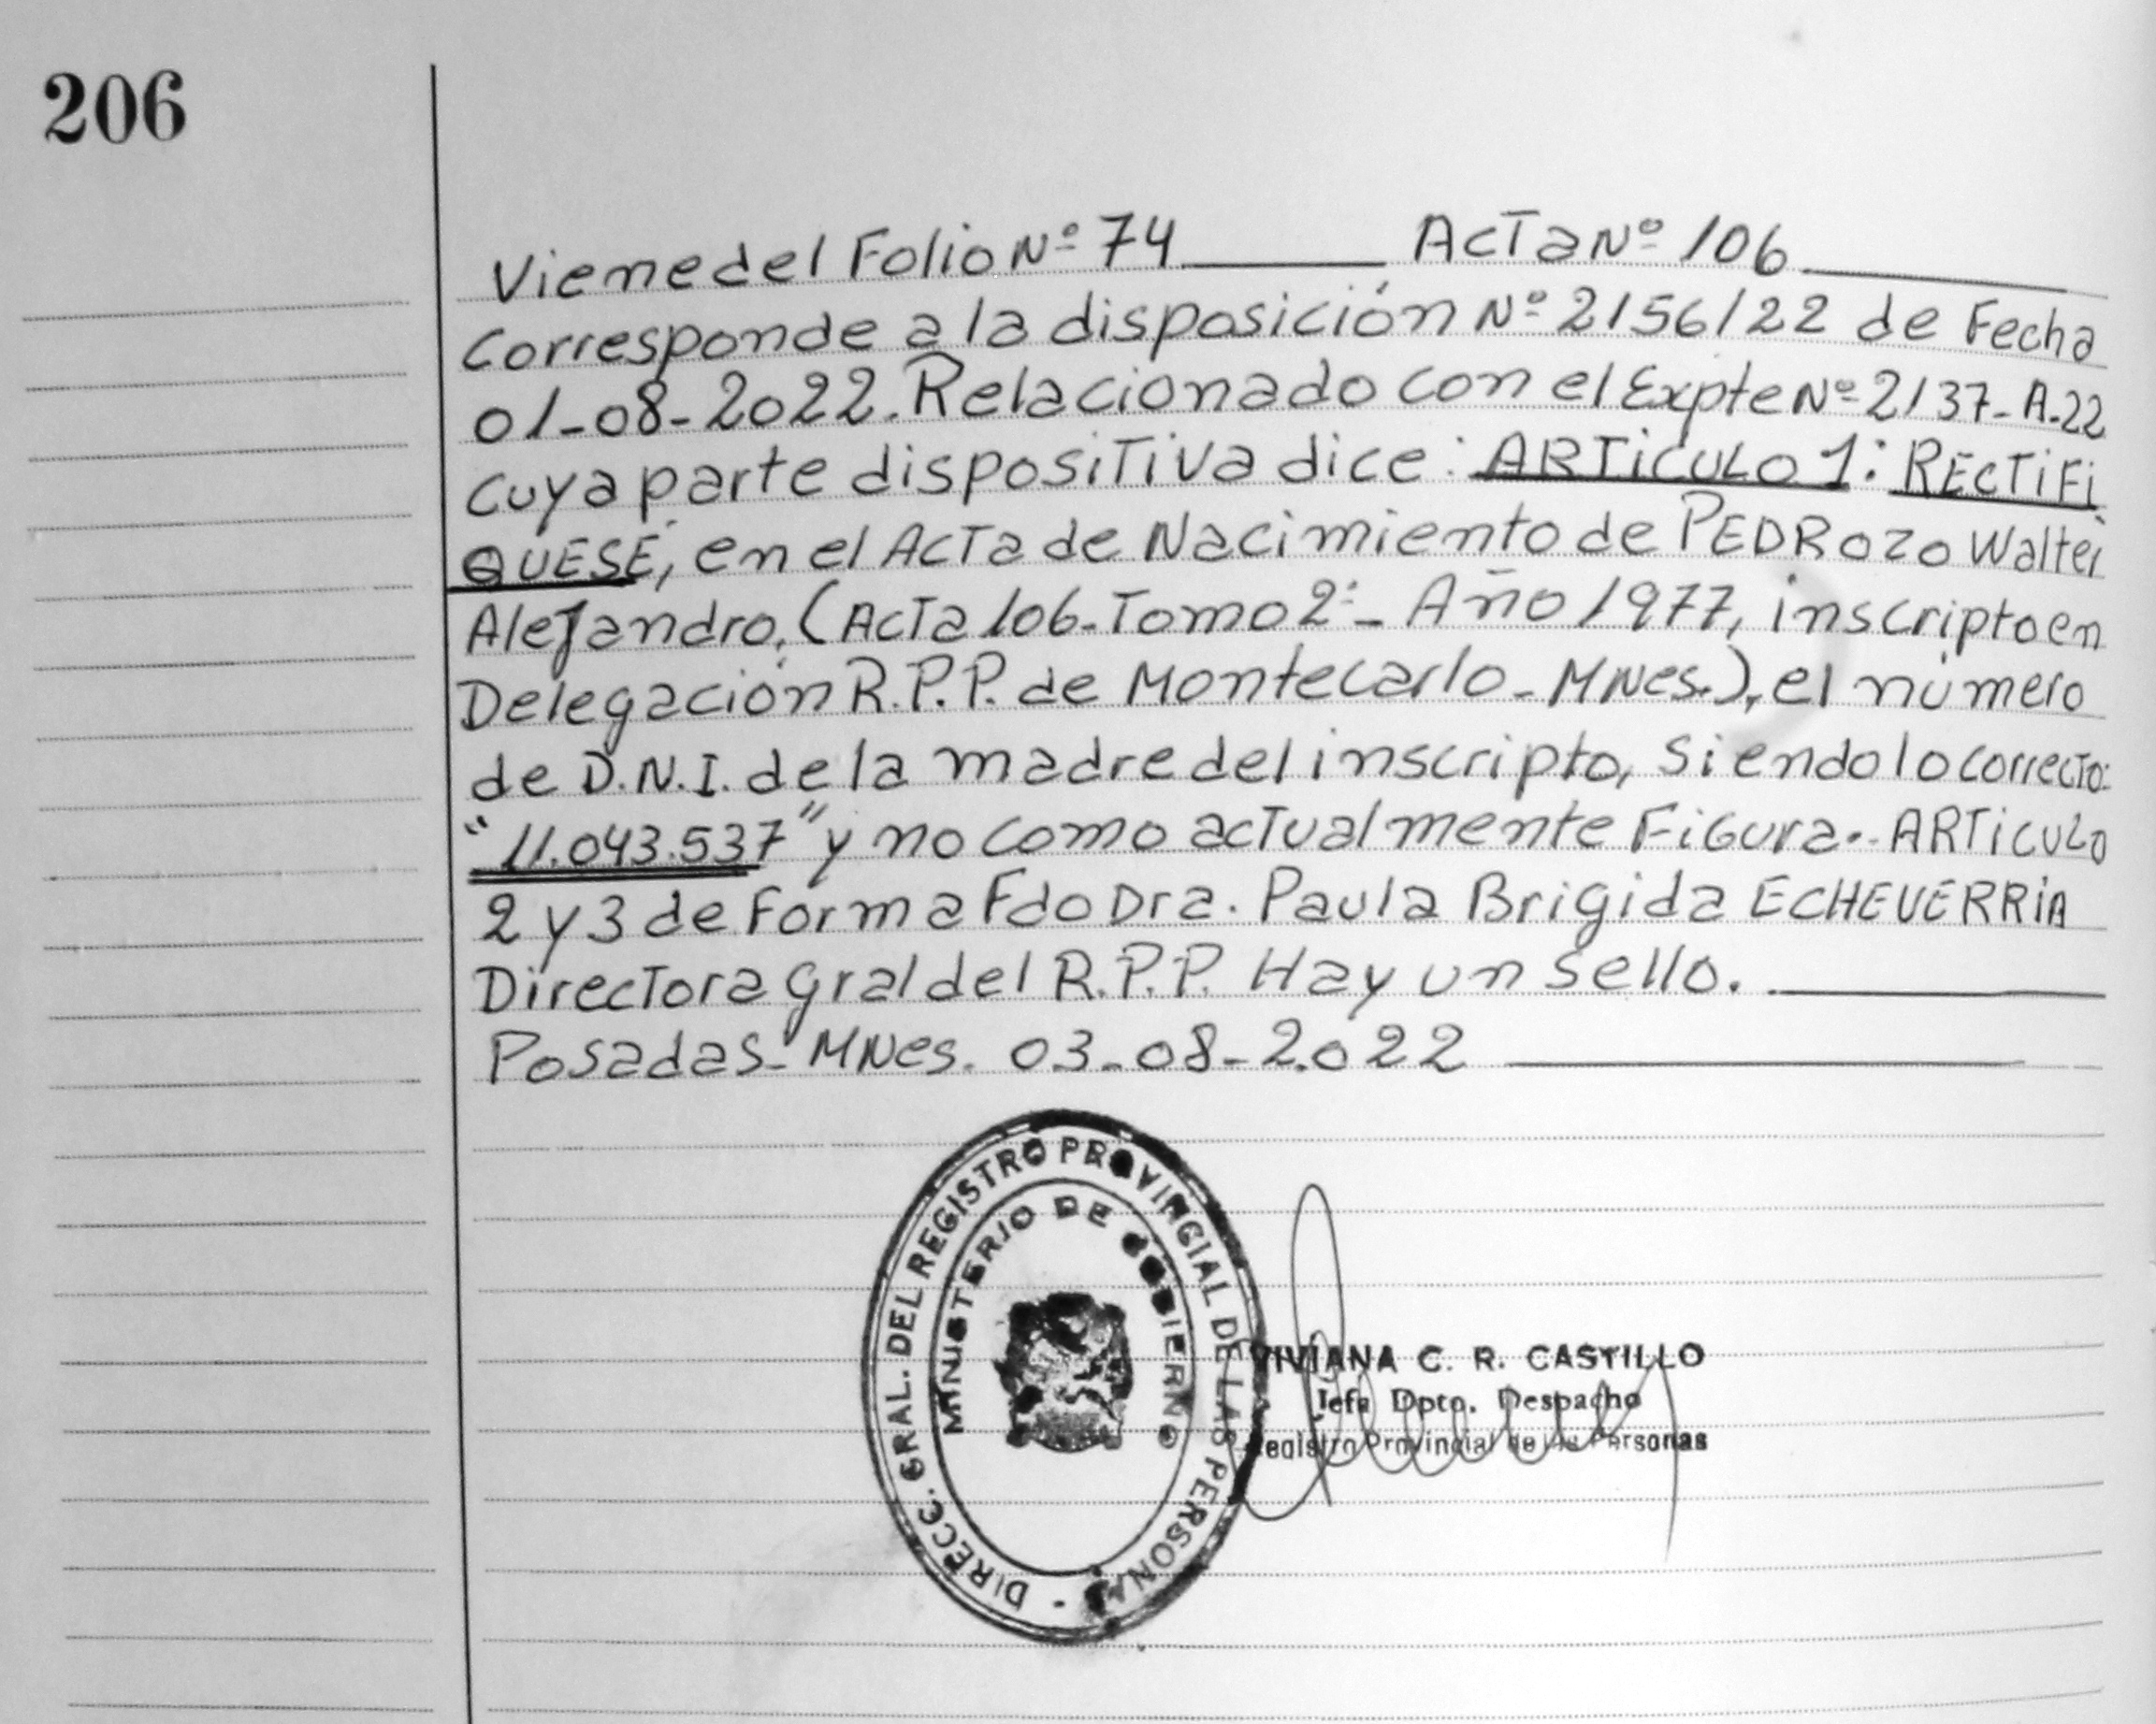 206
Viene del Folio Nº 74 ActaNº 106
Corresponde a la disposición Nº 2156/22 de Fecha
01-08-2022. Relacionado con el Expte Nº 2137-A-22
Cuya parte dispositiva dice: ARTiCULO 1: RECTiFi
QUESE, en el Acta de Nacimiento de PEDROZO Walter
Alejandro, (Acta 106-Tomo 2º- Año 1977, inscripto en
Delegación R.P.P. de Montecarlo-MNes.), el número
de D.N.I. de la madre del inscripto, Siendo lo correcto:
"11.043.537" y no como actualmente Figura.- ARTiCULO
2 y 3 de Forma Fdo Dra. Paula Brigida ECHEVERRiA
Directora Gral del R.P.P. Hay un Sello.
Posadas-MNes. 03-08-2022
DIRECC. GRAL. DEL REGISTRO PROVINCIAL DE LAS PERSONAS
MINISTERIO DE GOBIERNO
VIVIANA C. R. CASTILLO
Jefa Dpto. Despacho
Registro Provincial de las Personas